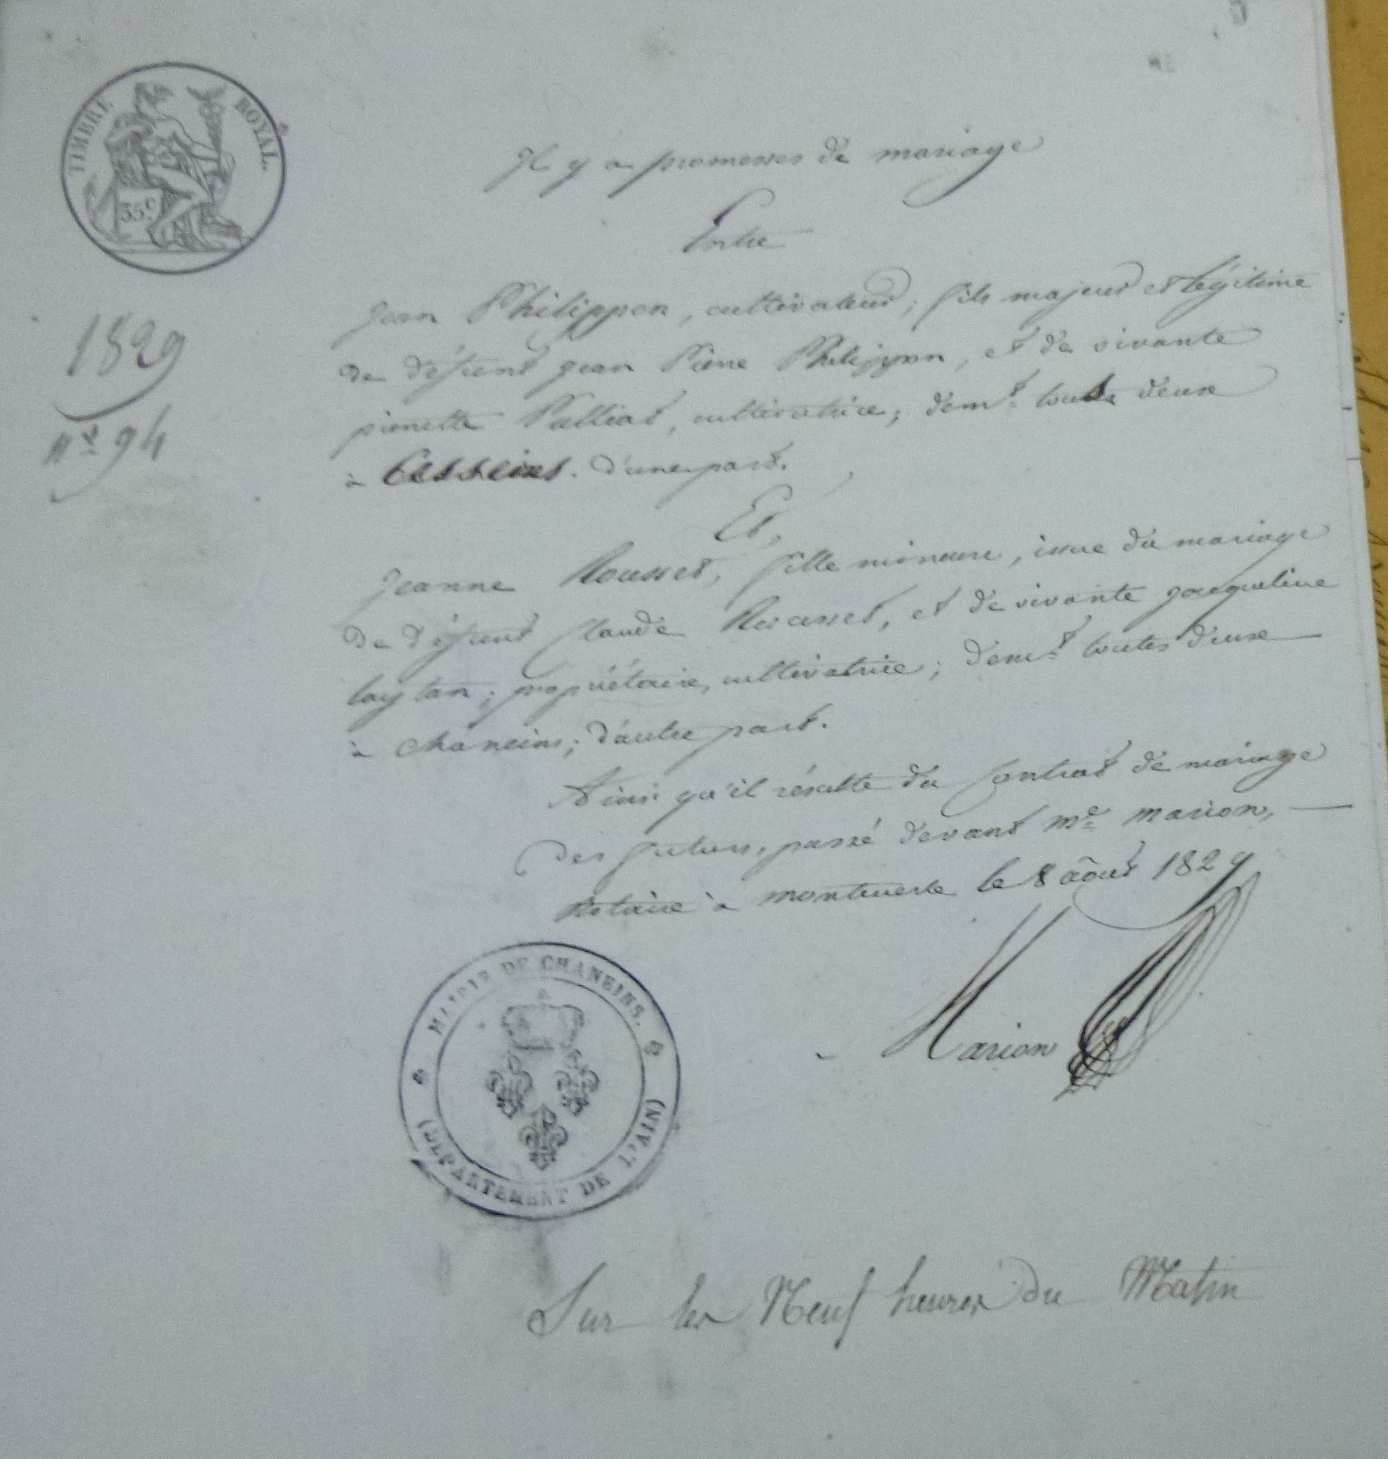 TIMBRE ROYAL.
35c
1829
n° 94
Il y a promesses de mariage
Entre
Jean Philippon, cultivateur, fils majeur et légitime
de défunt jean Pierre Philippon, et de vivante
pierrette Palliat, cultivatrice, demt. tous deux
à Cesseins. d'une part.
Et,
Jeanne Rousset, fille mineure, issue du mariage
de défunt Claude Rousset, et de vivante jacqueline
laytan; propriétaire, cultivatrice; demt. toutes deux
à chaneins; d'autre part.
Ainsi qu'il résulte du Contrat de mariage
des futurs, passé devant me. marion,
Notaire à montmerle le 8 août 1829
Marion
MAIRIE DE CHANEINS.
(DÉPARTEMENT DE L'AIN)
Sur les Neuf heures du Matin